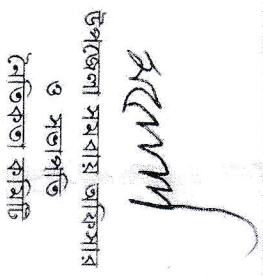 উপজেলা সমবায় অফিসার
ও সভাপতি
নৈতিকতা কমিটি